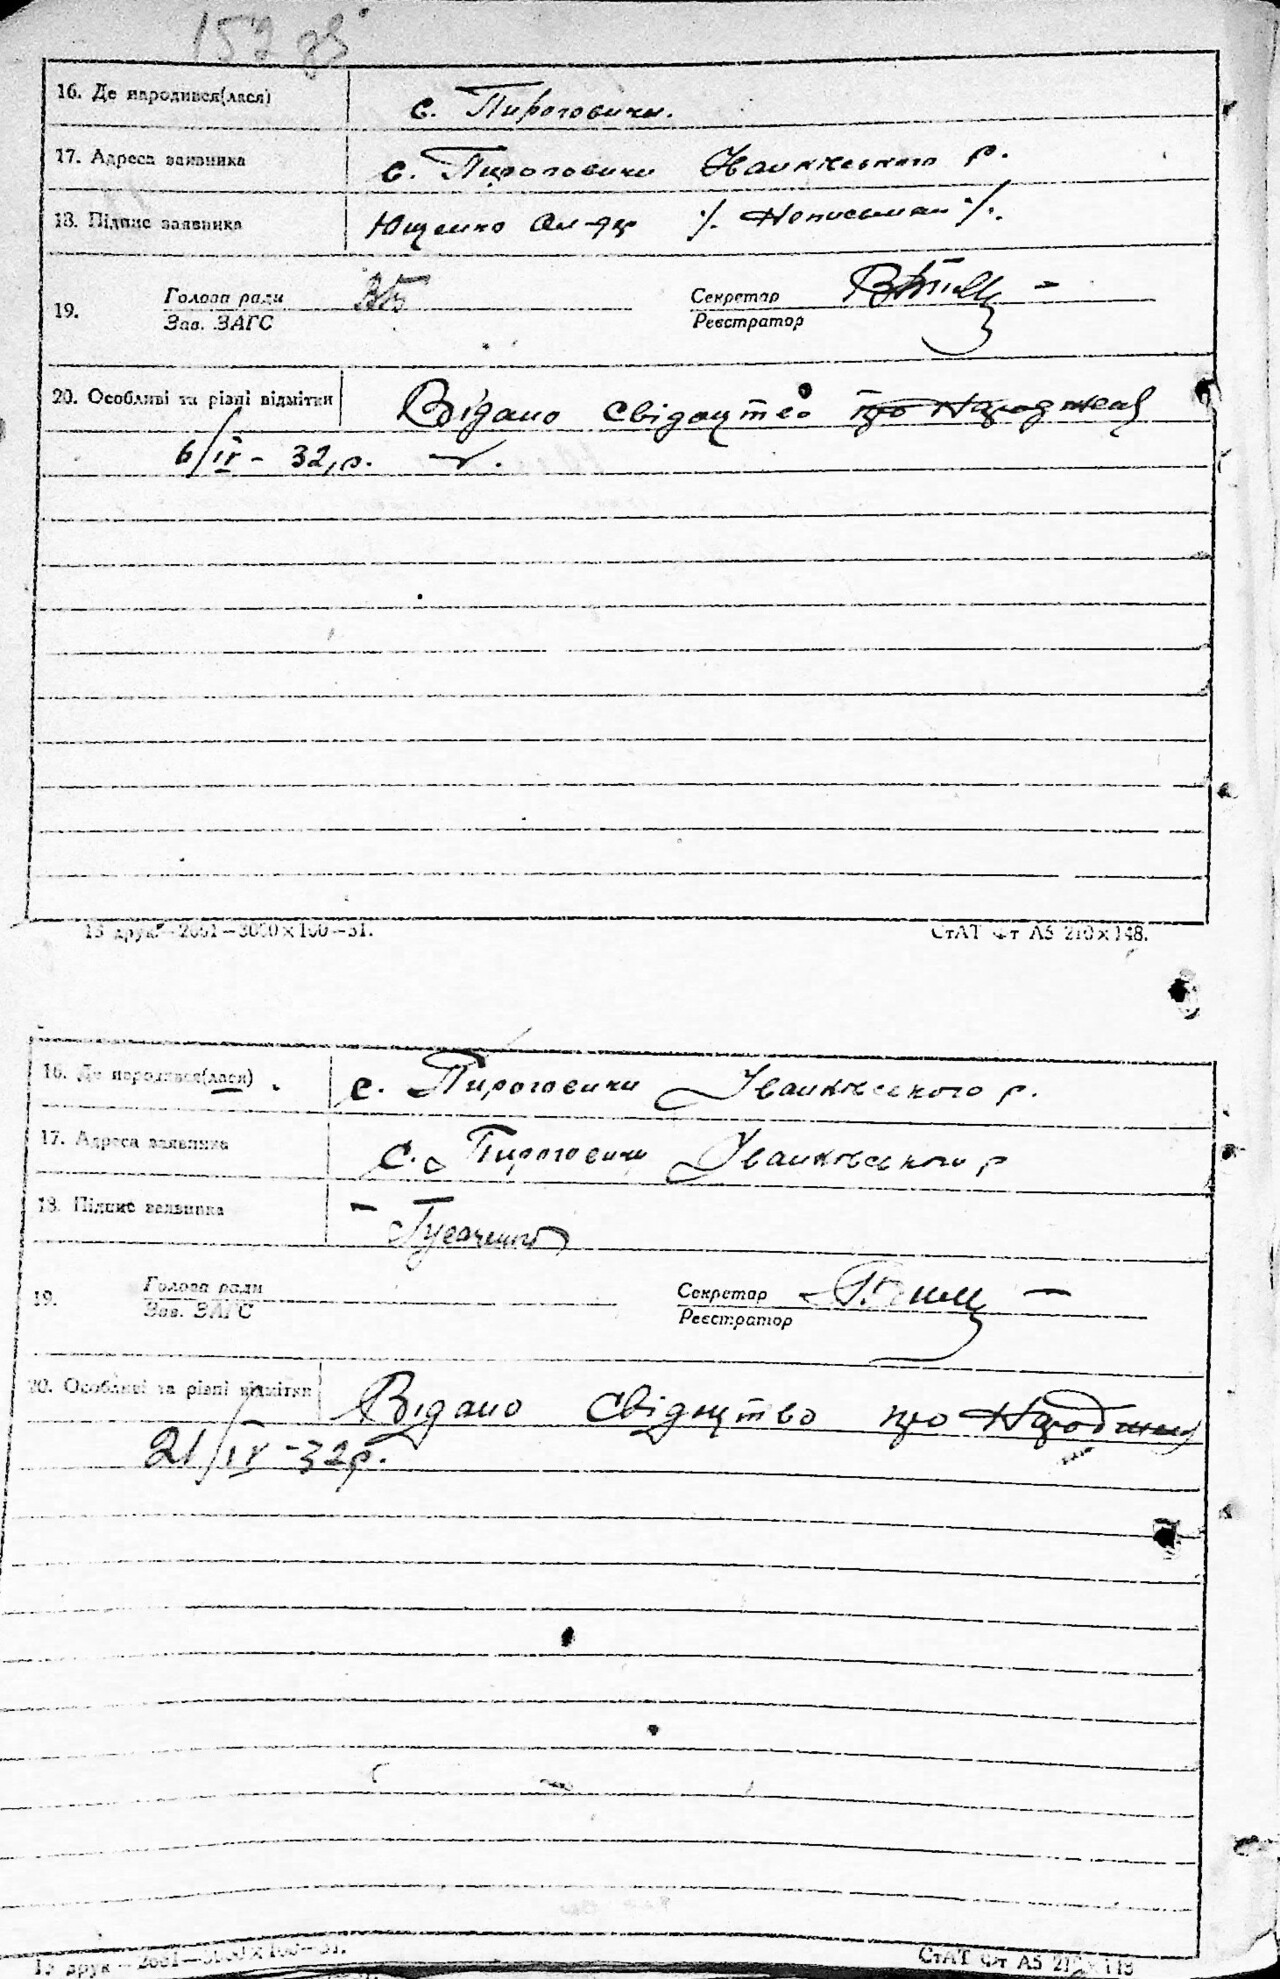 152 зв
16. Де народився(лася) с. Пироговичи.
17. Адреса заявника с. Пироговичи Іванківського р.
18. Підпис заявника Ющенко Ол-др /. Неписьман /.
19. Голова ради Секретар
Зав. ЗАГС Реєстратор
20. Особливі та різні відмітки Відано свідоцтво про народженя
6/IV - 32 р.
13 друк.—2051—3000×100—31. СтАТ Фт А5 210×148.
16. Де народився(лася) с. Пироговичи Іванківського р.
17. Адреса заявника с. Пироговичи Іванківського р
18. Підпис заявника
19. Голова ради Секретар
Зав. ЗАГС Реєстратор
20. Особливі та різні відмітки Відано свідоцтво про народженя
21/IV - 32 р.
13 друк.—2051—3000×100—31. СтАТ Фт А5 210×148